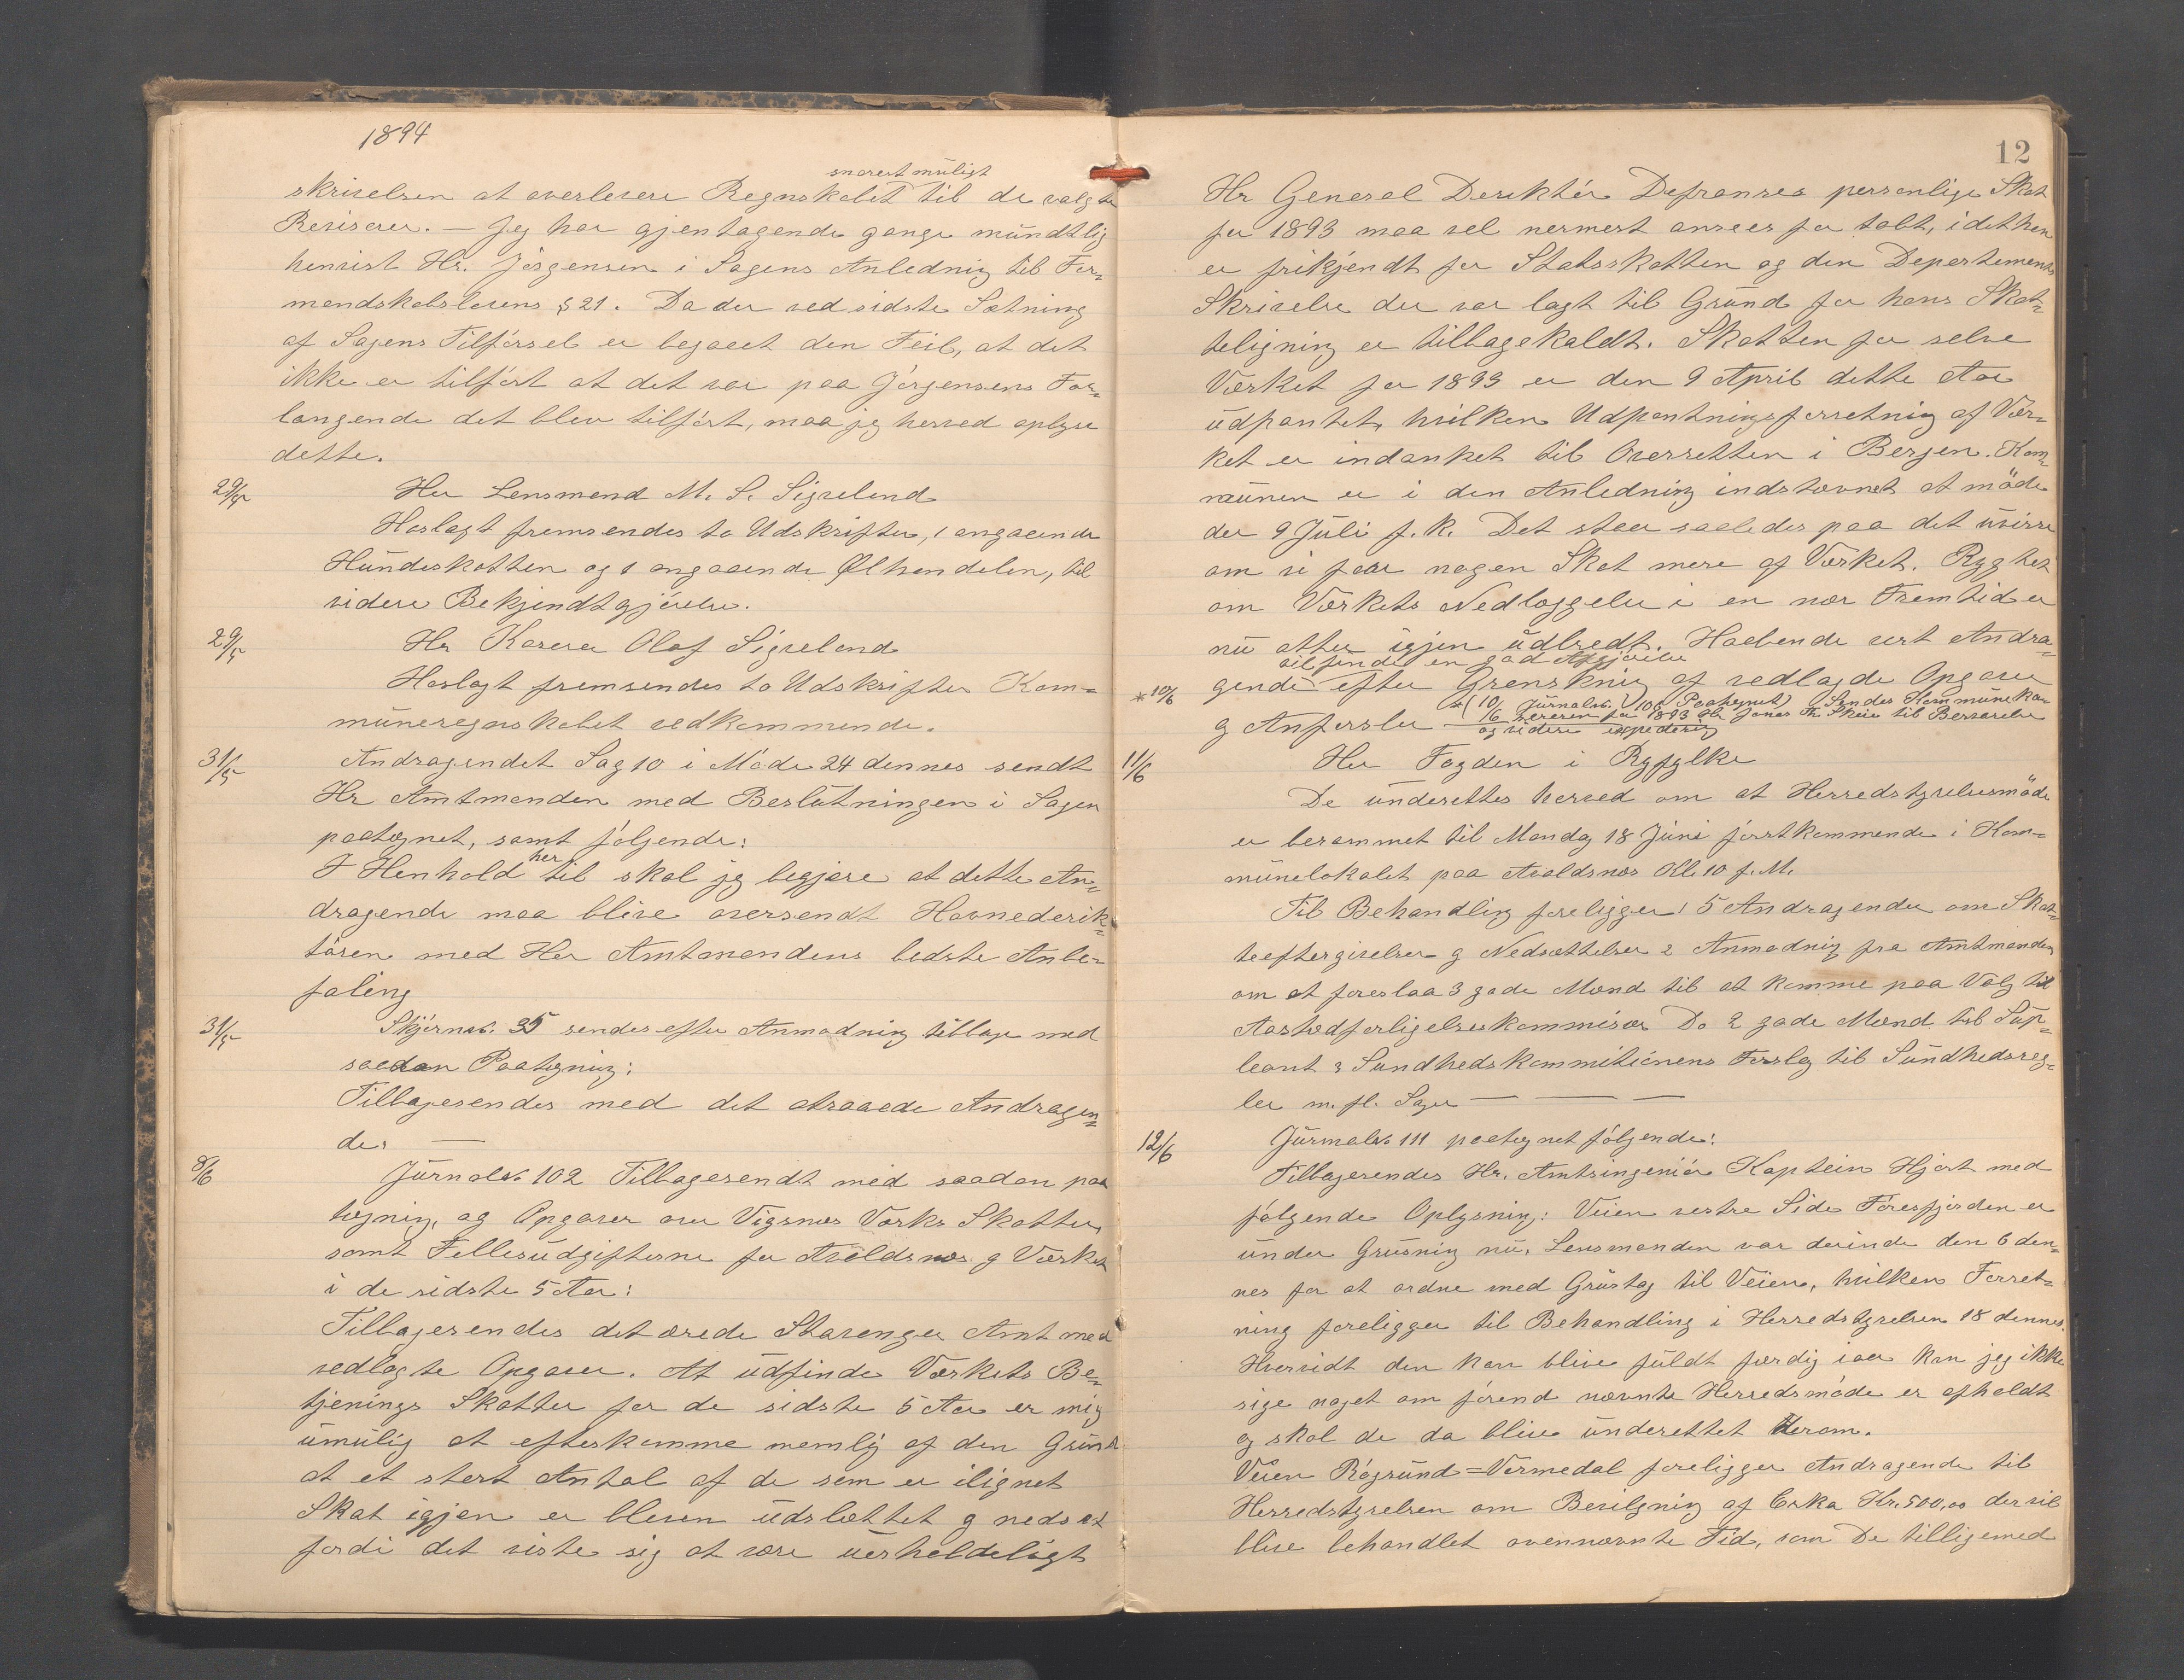 1894
snarest muligt
skrivelsen at overlevere Regnskabet til de valgte
Revisorer. — Jeg har gjentagende gange mündtlig
henvist Hr. Jørgensen i Sagens Anledning til For-
mandskabslovens § 21. Da der ved sidste Sætning
af Sagens Tilførsel er begaaet den Feil, at det
ikke er tilført at det var paa Jørgensens For-
langende det blev tilført, maa jeg herved oplyse
dette.
29/5 Her Lensmand M. S. Sigveland
Hoslagt fremsendes to Udskrifter, 1 angaaende
Hündeskatten og 1 angaaende Ølhandelen, til
videre Bekjendtgjørelse.
29/5 Hr Kaserer Olaf Sigveland
Hoslagt fremsendes to Udskrifter Kom-
müneregnskabet vedkommende.
31/5 Andragendet Sag 10 i Møde 24 dennes sendt
Hr Amtmanden med Beslütningen i Sagen
paategnet, samt følgende:
I Henhold her til skal jeg begjære at dette An-
dragende maa blive oversendt Havnederik-
tøren med Her Amtmandens bedste Anbe-
faling
31/5 Skjørnal. 35 sendes efter Anmodning tilbage med
saadan Paategning:
Tilbagesendes med det attraaede Andragen-
de. —
8/6 Jürnalnr. 102 Tilbagesendt med saadan paa
tegning, og Opgaver over Vigsnæs Værks Skatter,
samt Fellesüdgifterne for Avaldsnæs og Værket
i de sidste 5 Aar:
Tilbagesendes det ærede Stavanger Amt med
vedlagte Opgaver. At üdfinde Værkets Be-
tjenings Skatter for de sidste 5 Aar er mig
ümülig at efterkomme nemlig af den Gründ
at et stort Antal af de som er ilignet
Skat igjen er bleven üdslættet og nedsat
fordi det viste sig at være üerholdeligt
12
Hr General Derektør Defrances personlige Skat
for 1893 maa vel nermest ansees for tabt, idet han
er frikjendt for Statsskatten og den Departements
Skrivelse der var lagt til Gründ for hans Skat-
teligning er tilbagekaldt. Skatten for selve
Værket for 1893 er den 9 April dette Aar
üdpantet, hvilken Udpantningsforretning af Vær-
ket er indanket til Overretten i Bergen. Kom-
münen er i den Anledning indstævnet at møde
der 9 Jüli f. k. Det staar saaledes paa det üvisse
om vi faar nogen Skat mere af Værket. Rygtet
om Værkets Nedlæggelse i en nær Fremtid er
nü atter igjen üdbredt. Haabende vort Andra-
vil finde en god Afgjørelse
gende efter Granskning af vedlagde Opgave
og Anførsler
* 10/6 *(10/6 Jürnalnr. 106 Paategnet) Sendes Kommüneka-
sereren for 1893 Hr Jonas Th Skeie til Besvarelse
og videre expedering
11/6 Her Fogden i Ryfylke
De ünderettes herved om at Herredstyrelsesmøde
er berammet til Mandag 18 Jüni førstkommende i Kom-
münelokalet paa Avaldsnæs Kl. 10 f. M.
Til Behandling foreligger 1 5 Andragender om Skat-
teeftergivelser og Nedsættelser 2 Anmodning fra Amtmanden
om at foreslaa 3 gode Mænd til at komme paa Valg til
Aastedforligelseskommisær Do 2 gode Mænd til Süp-
leant 3 Sundhedskommitionens Forslag til Sündhedsreg-
ler m. fl. Sager — — —
12/6 Jürnalnr. 111 paategnet følgende:
Tilbagesendes Hr. Amtsingeniør Kaptein Hjort med
følgende Oplysning: Veien vestre Side Førresfjorden er
ünder Grüsning nü. Lensmanden var derinde den 6 den-
nes for at ordne med Grüstag til Veien, hvilken Forret-
ning foreligger til Behandling i Herredstyrelsen 18 dennes.
Hvorvidt den kan blive füldt færdig iaar kan jeg ikke
sige noget om førend nævnte Herredsmøde er afholdt
og skal de da blive ünderettet herom.
Veien Røgsünd=Vormedal foreligger Andragende til
Herredstyrelsen om Bevilgning af Cirka Kr. 500,00 der vil
blive behandlet ovennævnte Tid, som De tilligemed